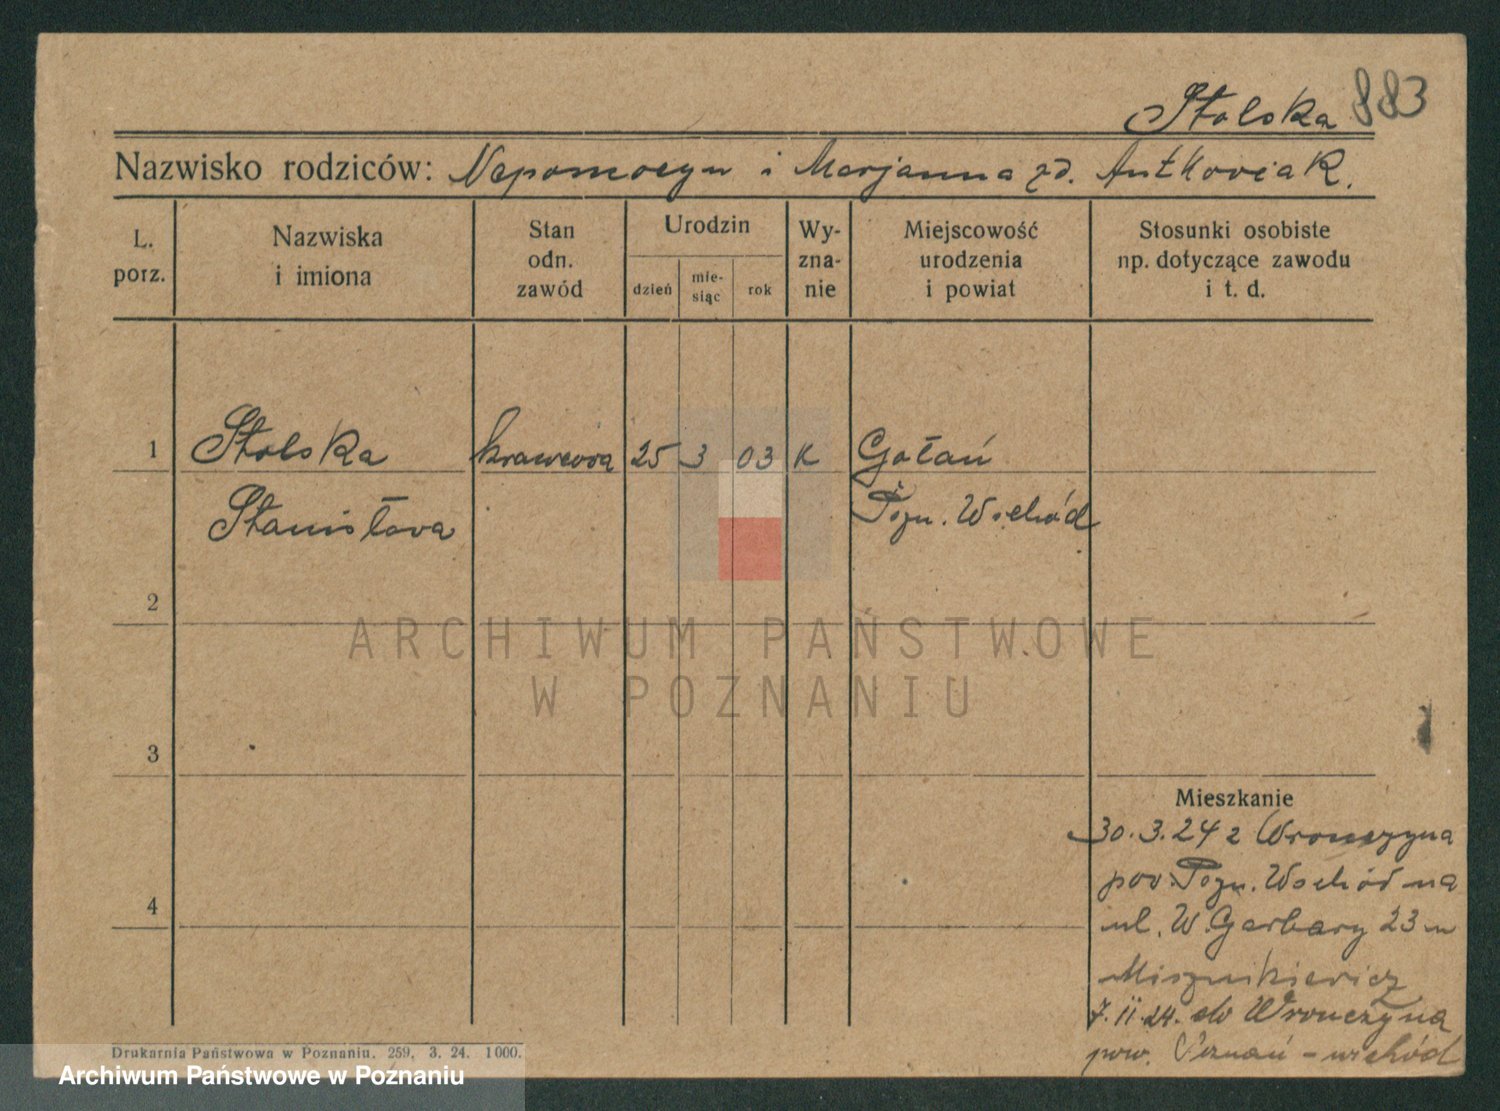 Stolska 883
Nazwisko rodziców: Nepomocyn i Marjanna zd. Antkoviak.
L. porz.
Nazwiska i imiona
Stan odn. zawód
Urodzin
dzień
mie-siąc
rok
Wy-zna-nie
Miejscowość urodzenia i powiat
Stosunki osobiste np. dotyczące zawodu i t. d.
1 Stolska krawcova 25 3 03 K Gołań
Stanisłava Pozn. Wschód
2
3
Mieszkanie
30.3.24 z Wronczyna
pov. Pozn. Wschód na
4
ul. W. Garbary 23 u
Miszukiewicz
7.11.24. do Wronczyna
pow. Poznań - wschód
Drukarnia Państwowa w Poznaniu. 259. 3. 24. 1000.
ARCHIWUM PAŃSTWOWE
W POZNANIU
Archiwum Państwowe w Poznaniu